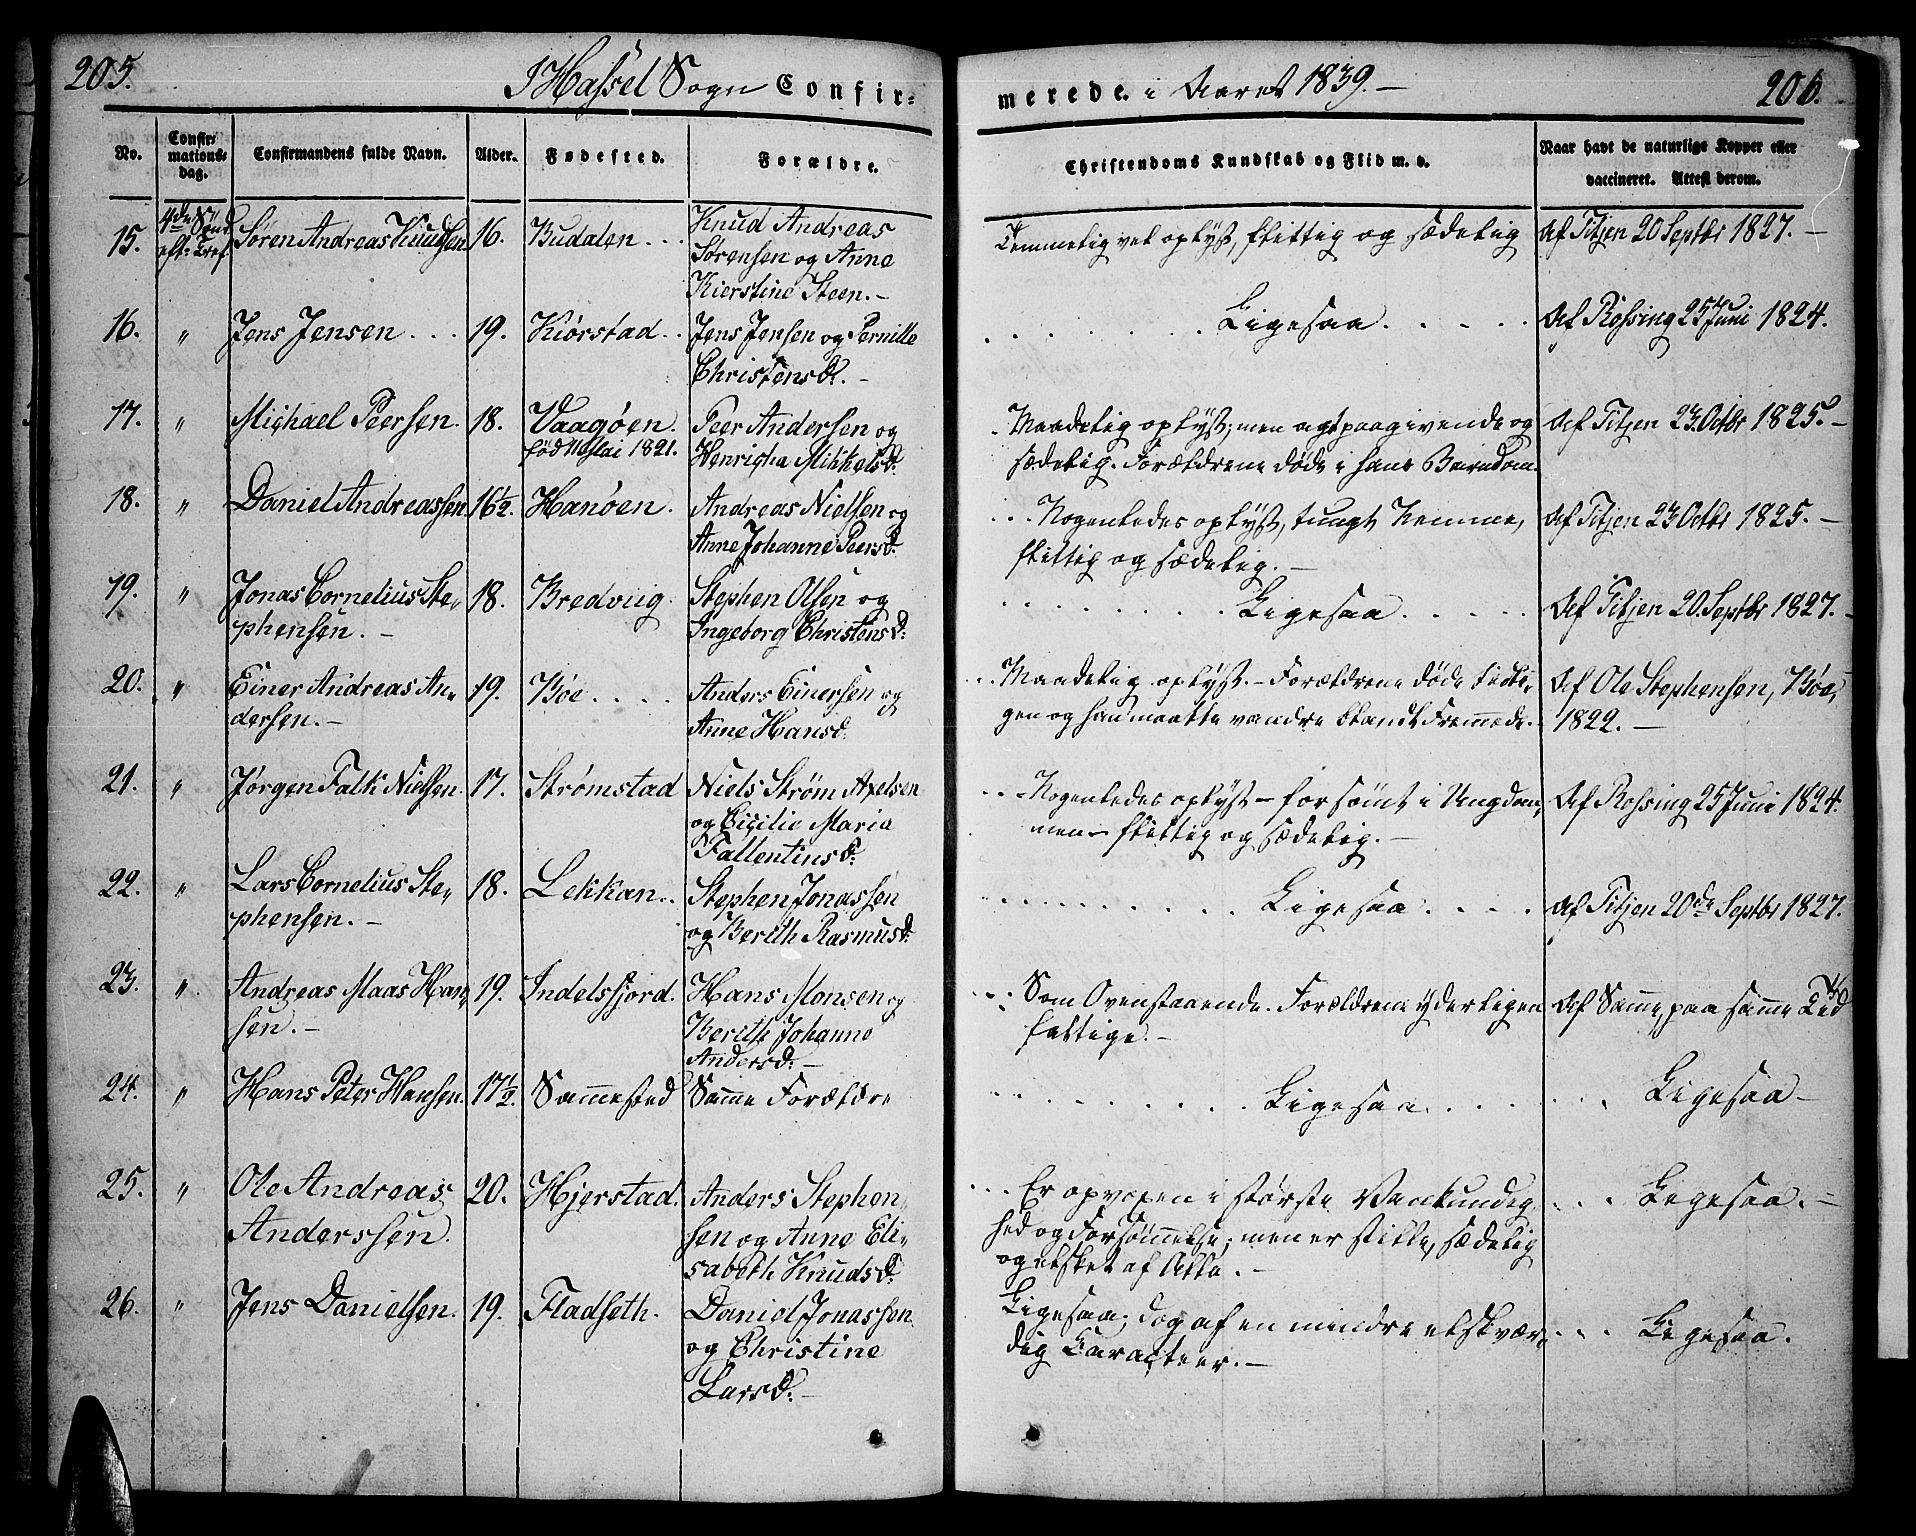 205.
I Hassel Sogn Confir-
merede. i Aaret 1839.-
206.
No.
Confir-
mations-
dag.
Confirmandens fulde Navn.
Alder.
Fødested.
Forældre.
Christendoms Kundskab og Flid m. v.
Naar havt de naturlige Kopper eller
vaccineret. Attest derom.
15.
4de Sönd
eft. Tref.
Søren Andreas Knudsen
16.
Budalen . . .
Knud Andreas
Sørensen og Anne
Kierstine Steen.-
Temmelig vel oplyst, flittig og sædelig
Af Titjen 20 Septbr 1827.-
16.
"
Jens Jensen . . .
19.
Kiørstad . .
Jens Jensen og Pernille
Christensd:.-
Ligesaa . . . . .
Af Rossing 25 Juni 1824.
17.
"
Michael Peersen.
18.
Vaagøen.
født Mai 1821.
Peer Andersen og
Henricha Mikkelsd:
Maadelig oplyst; men agtpaagivende og
sædelig. Forældrene døde i hans Barndom.
Af Titjen 23 Octbr 1825.-
18.
"
Daniel Andreassen
16½.
Hanøen.
Andreas Nielsen og
Anne Johanne Peersd:
. . . Nogenledes oplyst, tungt Nemme,
flittig og sædelig.-
Af Titjen 23 Octbr 1825.-
19.
"
Jonas Cornelius Ste-
phensen.-
18.
Bredviig
Stephen Olsen og
Ingeborg Christensd:
Ligesaa . . . .
Af Titjen 20. Septbr 1827.-
20.
"
Einer Andreas An-
dersen.-
19.
Bøe . . . .
Anders Einersen og
Anne Hansd:
. . Maadelig oplyst.- Forældrene døde tidli-
gen og han maatte vandre blandt Fremmede.-
Af Ole Stephensen, Bøe,
1822.-
21.
"
Jørgen Falk Nielsen.
17.
Strømstad
Niels Strøm Axelsen
og Cicilie Maria
Fallentinsd:
. . . Nogenledes oplyst - forsømt i Ungdom,
men - flittig og sædelig.-
Af Rossing 25 Juni 1824.
22.
"
Lars Cornelius Ste-
phensen.-
18.
Lekkan . .
Stephen Jonassen
og Berith Rasmusd:
Ligesaa . . . .
Af Titjen 20de Septbr 1827.
23.
"
Andreas Maas Han-
sen.-
19.
Indelsfjord.
Hans Monsen og
Berith Johanne
Andersd:-
. . . Som Ovenstaaende. Forældrene yderligen
fattige.-
Af Samme, paa samme Tid
24.
"
Hans Peter Hansen.
17½.
Sammested
Samme Forældre
Ligesaa . . . .
Ligesaa -
25.
"
Ole Andreas
Anderssen.
20.
Hjerstad.
Anders Stephen-
sen og Anne Eli-
sabeth Knudsd:
. . . Er opvoxen i største Vankundig-
hed og Forsømmelse; men er stille, sædelig
og elsket af Alle.-
. . . Ligesaa.-
26.
"
Jens Danielsen.
19.
Fladseth.
Daniel Jonassen
og Christine
Larsd:-
Ligesaa; dog af en mindre elskvær-
dig Caracteer.-
. . . Ligesaa.